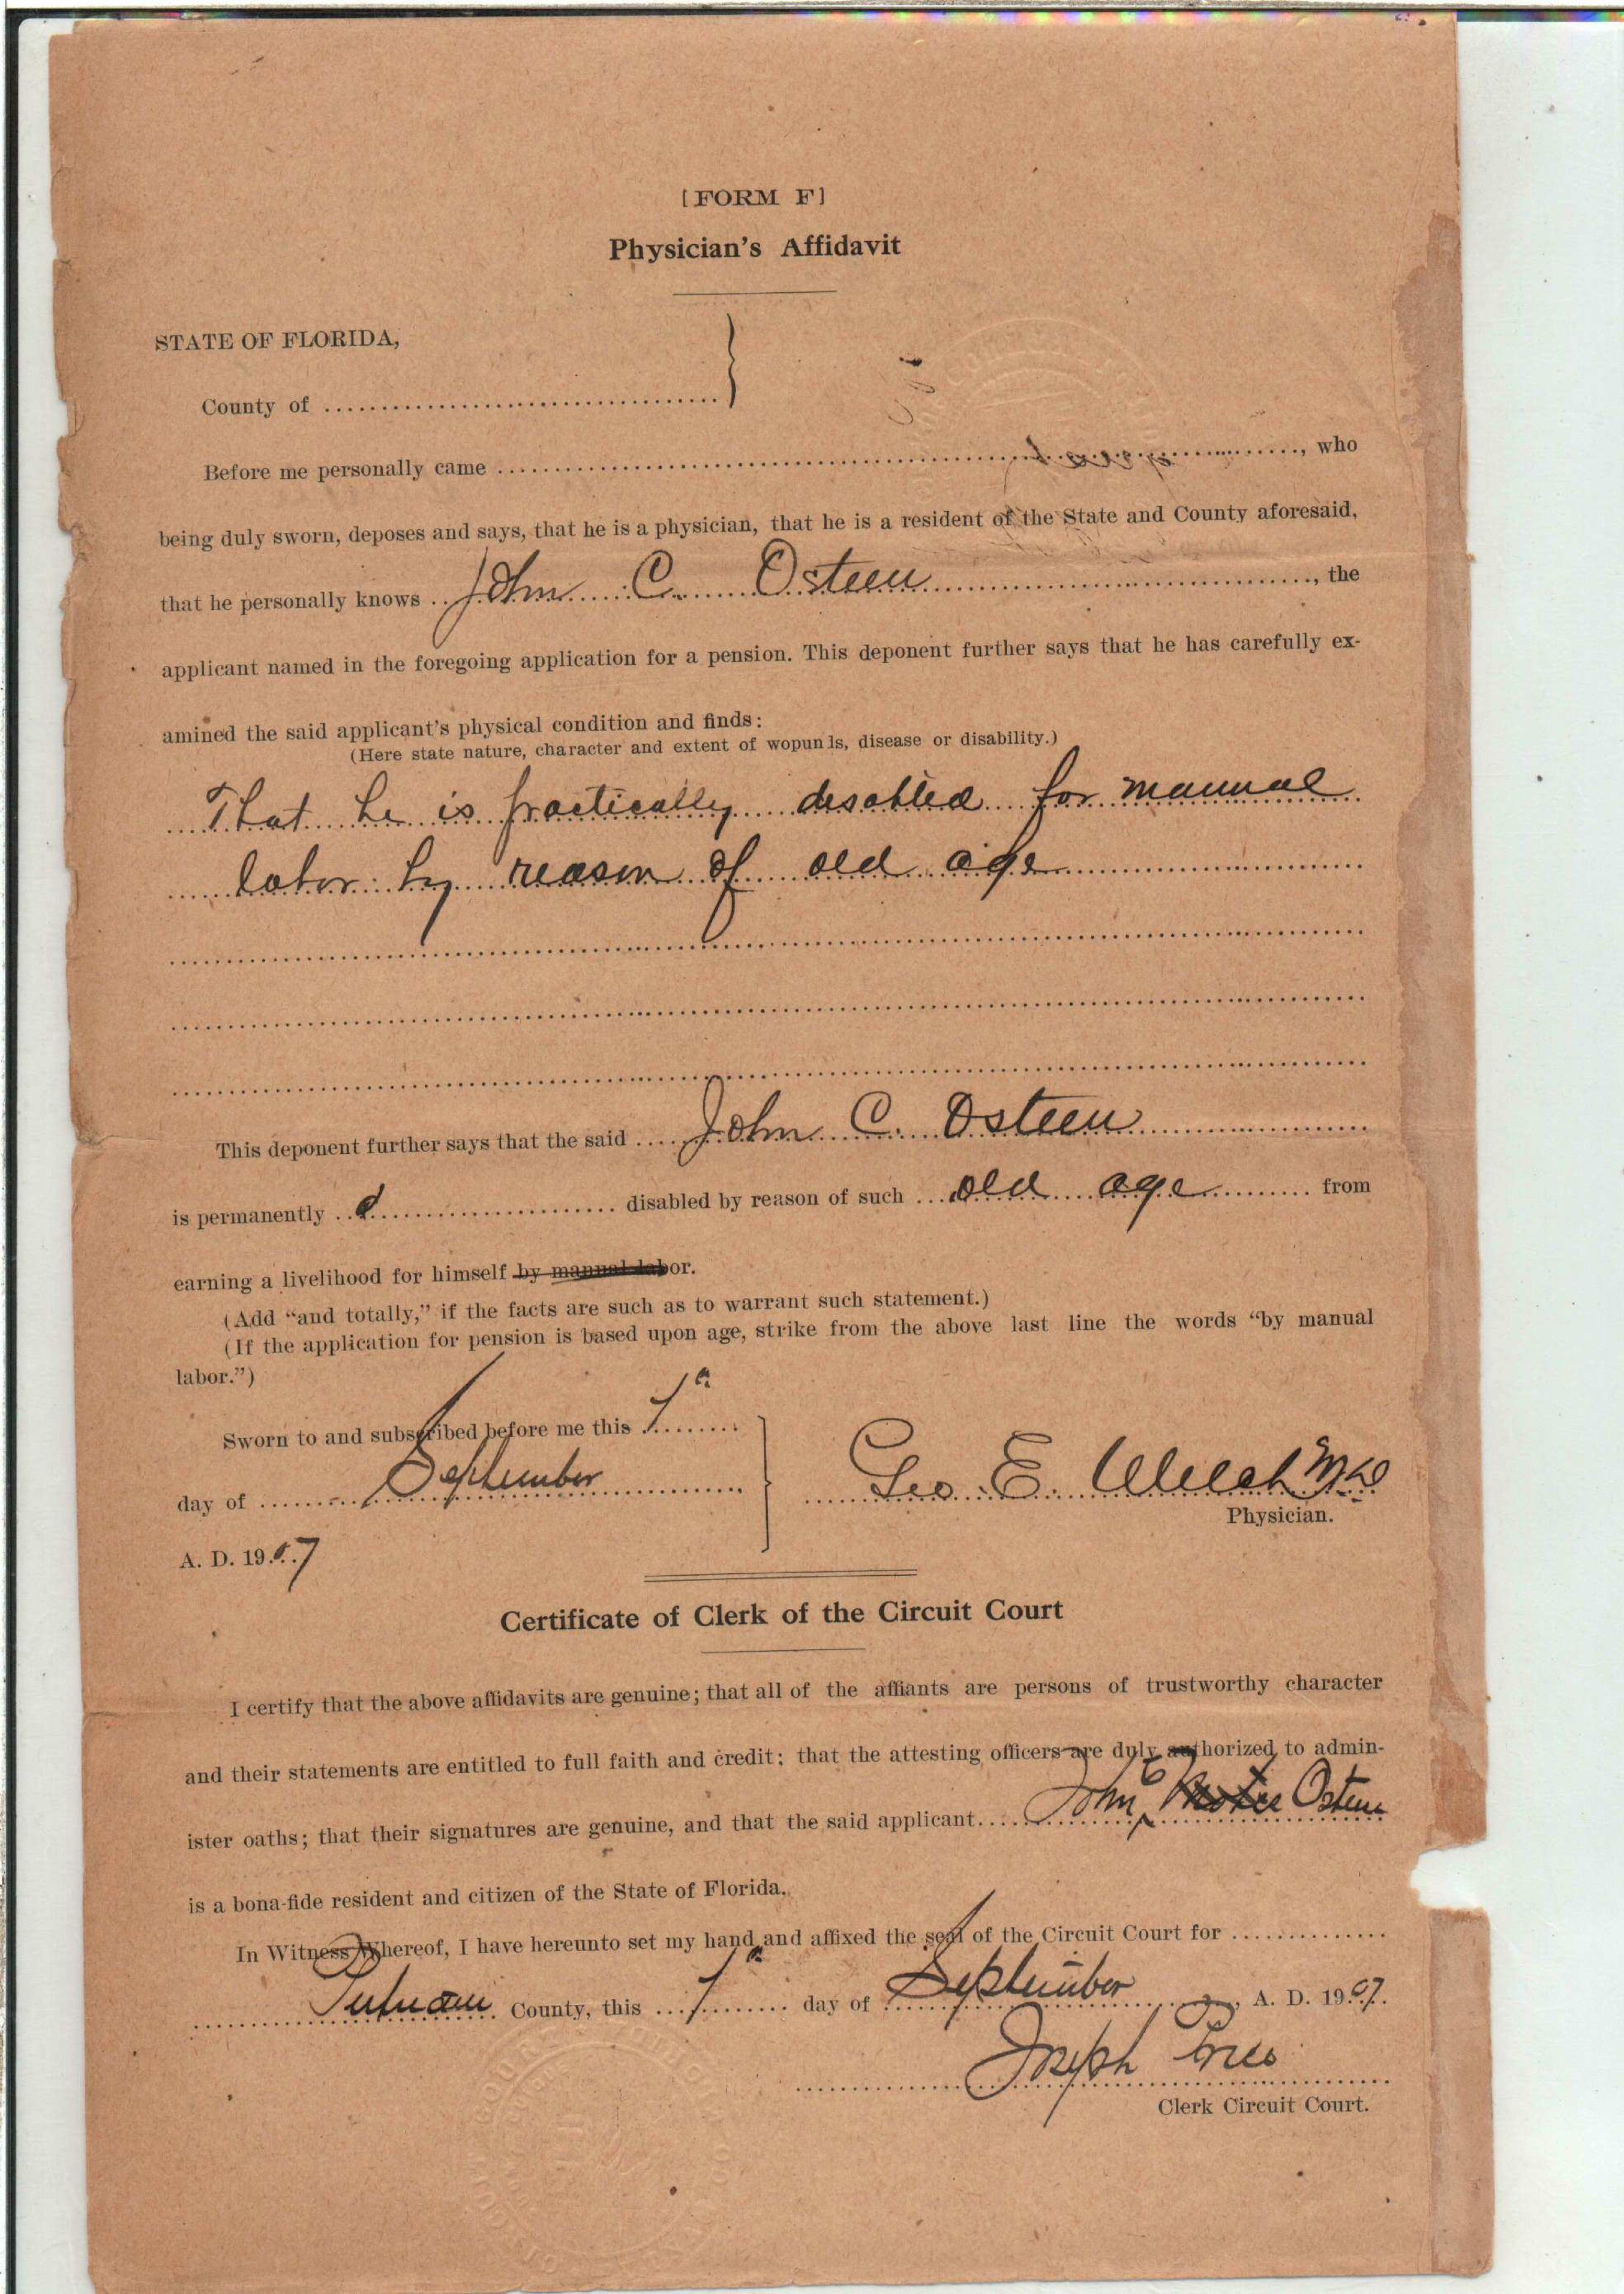 [FORM F]
Physician's Affidavit
STATE OF FLORIDA,
County of
Before me personally came , who
being duly sworn, deposes and says, that he is a physician, that he is a resident of the State and County aforesaid,
that he personally knows John C. Osteen, the
applicant named in the foregoing application for a pension. This deponent further says that he has carefully ex-
amined the said applicant's physical condition and finds:
(Here state nature, character and extent of wopun ls, disease or disability.)
That he is practically disabled for manual
labor by reason of old age
This deponent further says that the said John C. Osteen
is permanently disabled by reason of such old age from
earning a livelihood for himself by manual labor.
(Add "and totally," if the facts are such as to warrant such statement.)
(If the application for pension is based upon age, strike from the above last line the words "by manual
labor.")
Sworn to and subscribed before me this 7"
day of September
A. D. 1907
Geo. E. Welch MD
Physician.
Certificate of Clerk of the Circuit Court
I certify that the above affidavits are genuine; that all of the affiants are persons of trustworthy character
and their statements are entitled to full faith and credit; that the attesting officers are duly authorized to admin-
ister oaths; that their signatures are genuine, and that the said applicant John C Osteen
is a bona-fide resident and citizen of the State of Florida.
In Witness Whereof, I have hereunto set my hand and affixed the seal of the Circuit Court for
Putnam County, this 7" day of September, A. D. 1907.
Joseph Price
Clerk Circuit Court.